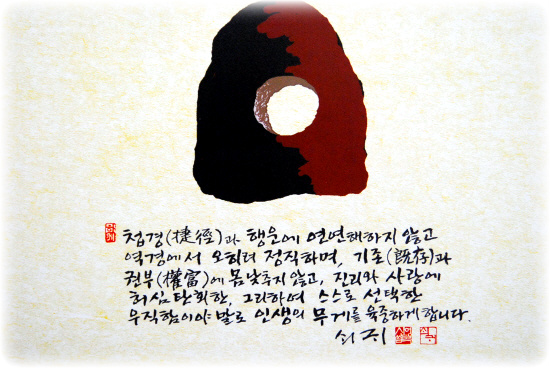 첩경(捷徑)과 행운에 연연해하지 않고
역경에서 오히려 정직하며, 기존(旣存)과
권부(權富)에 몸낮추지 않고, 진리와 사랑에
허심탄회한, 그리하여 스스로 선택한
우직함이야 말로 인생의 무게를 육중하게 합니다.
쇠귀